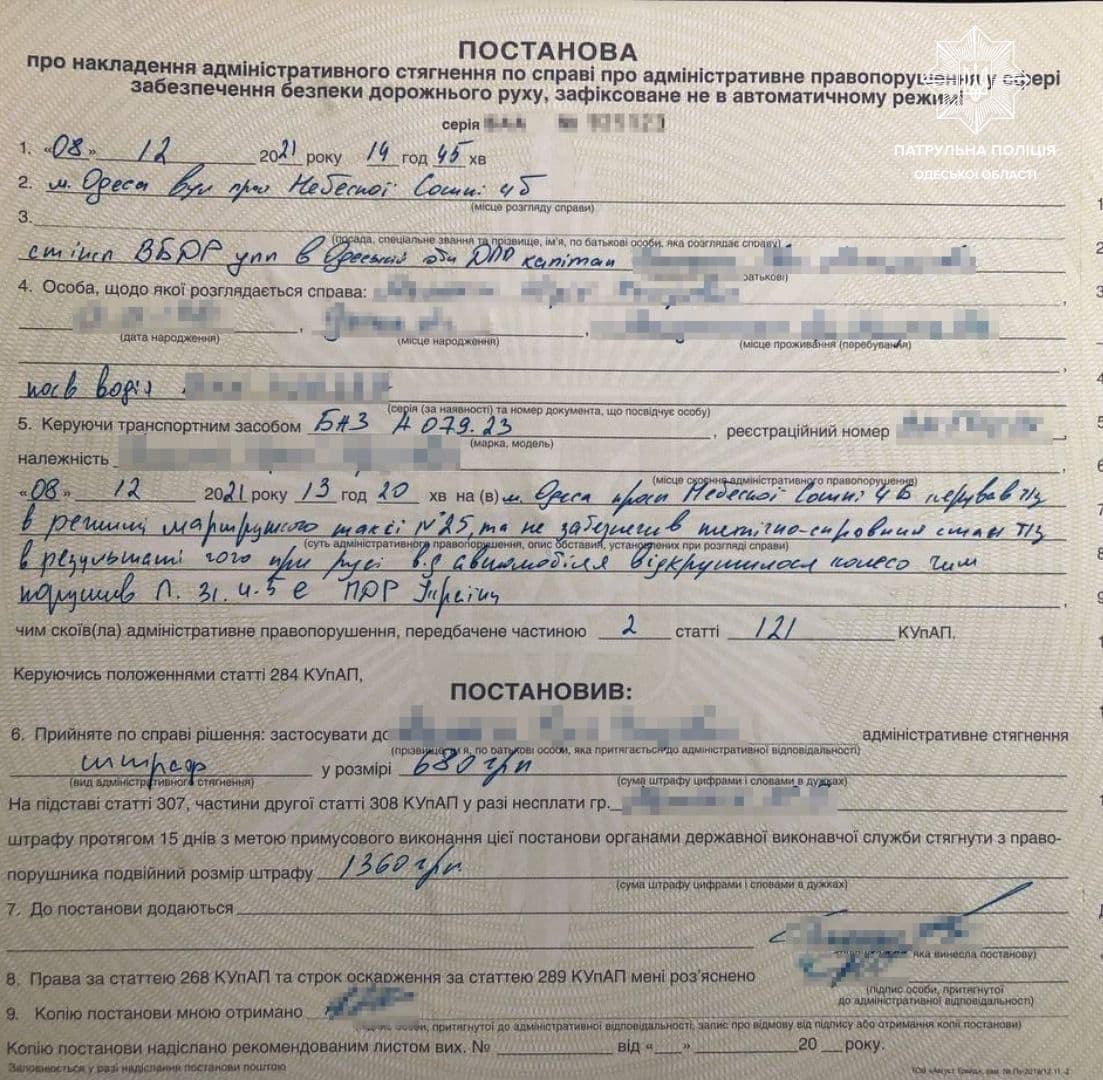 ПОСТАНОВА
про накладення адміністративного стягнення по справі про адміністративне правопорушення у сфері
забезпечення безпеки дорожнього руху, зафіксоване не в автоматичному режимі
серія
ПАТРУЛЬНА ПОЛІЦІЯ
ОДЕСЬКОЇ ОБЛАСТІ
1. «08» 12 2021 року 14 год 45 хв
2. м. Одеса вул прос Небесної Сотні 4б
(місце розгляду справи)
3.
(посада, спеціальне звання та прізвище, ім'я, по батькові особи, яка розглядає справу)
ст інсп ВБДР упп в Одеській обл ДПП капітан
батькові)
4. Особа, щодо якої розглядається справа:
(дата народження) (місце народження) (місце проживання (перебування)
посв водія
(серія (за наявності) та номер документа, що посвідчує особу)
5. Керуючи транспортним засобом БАЗ А 079.23 , реєстраційний номер
(марка, модель)
належність
(місце скоєння адміністративного правопорушення)
«08» 12 2021 року 13 год 20 хв на (в) м. Одеса просп Небесної Сотні 4Б керував т/з
в режимі маршрутного таксі №25, та не забезпечив технічно-справний стан т/з
(суть адміністративного правопорушення, опис обставин, установлених при розгляді справи)
в результаті чого при русі від автомобіля відкрутилося колесо чим
порушив П. 31.4.5 е ПДР України
чим скоїв(ла) адміністративне правопорушення, передбачене частиною 2 статті 121 КУпАП.
Керуючись положеннями статті 284 КУпАП,
ПОСТАНОВИВ:
6. Прийняте по справі рішення: застосувати до адміністративне стягнення
(прізвище, ім'я, по батькові особи, яка притягається до адміністративної відповідальності)
штраф у розмірі 680 грн
(вид адміністративного стягнення) (сума штрафу цифрами і словами в дужках)
На підставі статті 307, частини другої статті 308 КУпАП у разі несплати гр.
штрафу протягом 15 днів з метою примусового виконання цієї постанови органами державної виконавчої служби стягнути з право-
порушника подвійний розмір штрафу 1360 грн
(сума штрафу цифрами і словами в дужках)
7. До постанови додаються
яка винесла постанову)
8. Права за статтею 268 КУпАП та строк оскарження за статтею 289 КУпАП мені роз'яснено
(підпис особи, притягнутої
до адміністративної відповідальності)
9. Копію постанови мною отримано
особи, притягнутої до адміністративної відповідальності, запис про відмову від підпису або отримання копії постанови)
Копію постанови надіслано рекомендованим листом вих. № від « » 20 року.
Заповнюється у разі надіслання постанови поштою